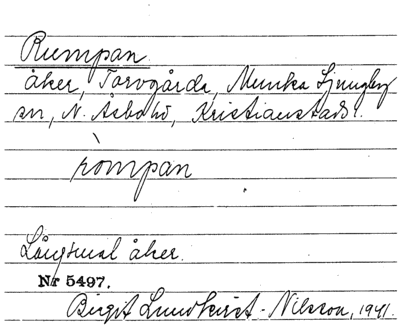 Rumpan
åker, Torvgårda, Munka Ljungby
sn, N. Åsbo hd, Kristianstads l.
ròmpan
Långsmal åker.
Nr 5497.
Birgit Lundkvist-Nilsson, 1941.